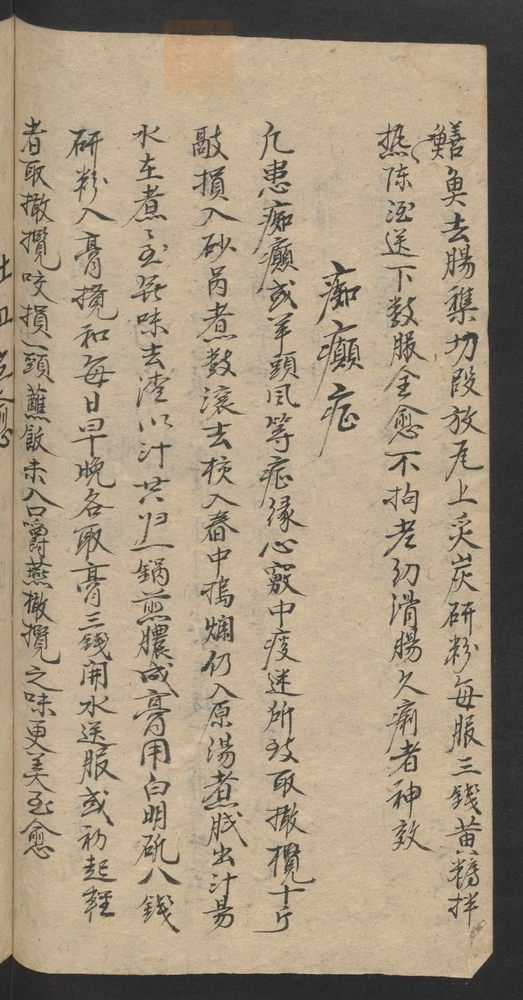 鱔魚去腸雜切段放瓦上炙炭研粉每服三錢黃糖拌
熱陈酒送下数服全愈不拘老幼滑腸久痢者神效
痴癲症
凢患痴癲或羊頭风等症缘心竅中痰迷所致取橄欖十斤
敲損入砂焗煮数滚去核入舂中搗爛仍入原湯煮膩出汁易
水在煮〻至無味去渣以汁共归一锅煎膿成膏用白明矾八錢
研粉入膏攪和每日早晚各取膏三錢開水送服或初起輕
者取橄欖咬損一頭蘸飯未入口嚼燕橄欖之味更美至愈